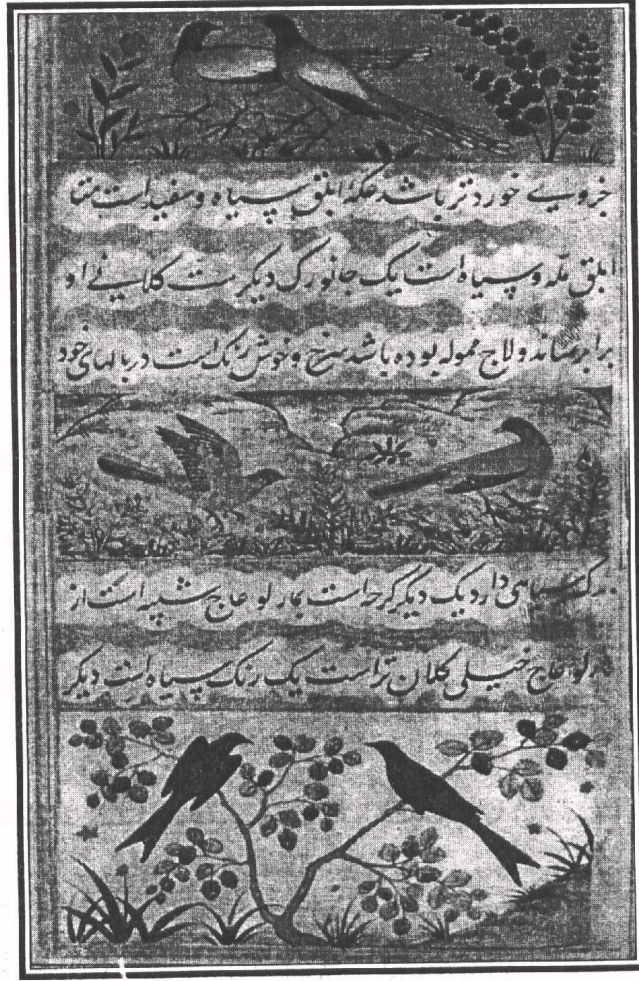 خروبی خورد تر باشد عکهٔ ابلق سپیاه و سفید است متا
ابلق مله و سپیاه است یک جانورک دیگر هست کلانیء او
برابر ساند ولاج مموله بوده باشد سرخ و خوش رنک است در بالهای خود
سیاهی دارد یک دیگر کرجه است بمار لو عاج شبیه است از
عاج خیلی کلان تر است یک رنک سپیاه است دیگر